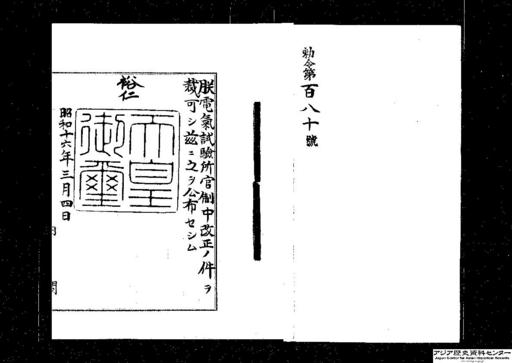 勅令第百八十號
朕電氣試驗所官制中改正ノ件ヲ
裁可シ茲ニ之ヲ公布セシム
裕仁
天皇
御璽
昭和十六年三月四日
内閣
アジア歴史資料センター
Japan Center for Asian Historical Records